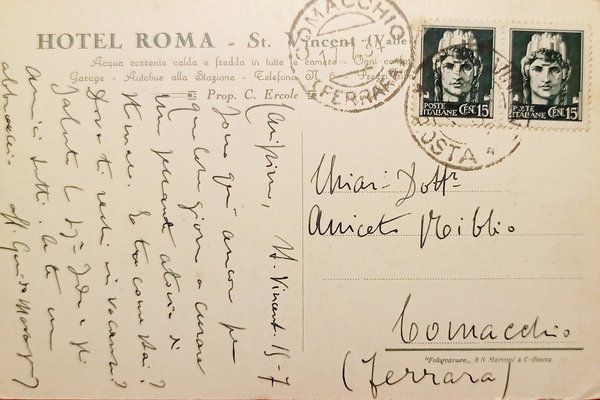 HOTEL ROMA - St. Vincent (Valle
Acqua corrente calda e fredda in tutte le camere - Ogni con
Garage - Autobus alla Stazione - Telefono N. 6 - Prezzi
Prop. C. Ercole
COMACCHIO
FERRARA
AOSTA
POSTE ITALIANE CENT. 15
POSTE ITALIANE CENT. 15
St. Vincent. 15-7
Carissimo,
sono qui ancora per
qualche giorno a curare
una pesante atonia di
stomaco. E tu come stai?
Dove ti rechi in vacanza?
Saluta
amici tutti. a te un
abbraccio.
Chiar. Dott.
Aniceto Niblio
Comacchio
(Ferrara)
"Fotogravure" B N Marconi & C - Genova